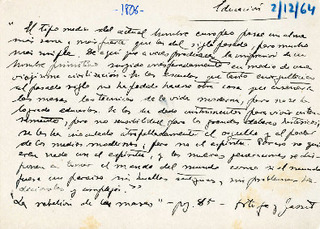 -1806-
Educación 2/12/64
"El tipo medio del actual hombre europeo posee un alma
más sana y más fuerte que las del siglo pasado, pero mucho
más simple. De aquí que a veces produzca la impresión de un
hombre primitivo surgido inesperadamente en medio de una
viejísima civilización. En las escuelas que tanto enorgullecían
al pasado siglo no ha podido hacerse otra cosa que enseñar a
las masas las técnicas de la vida moderna, pero no se ha
logrado educarlas. Se les ha dado instrumentos para vivir inten-
samente, pero no sensibilidad para los grandes deberes históricos;
se les han inculcado atropelladamente el orgullo y el poder
de los medios modernos, pero no el espíritu. Por eso no quie-
ren nada con el espíritu, y las nuevas generaciones se dis-
ponen a tomar el mando del mundo como si el mundo
fuese un paraíso sin huellas antiguas, sin problemas tra-
dicionales y complejos."
"La rebelión de las masas" - pg. 85 - Ortega y Gasset